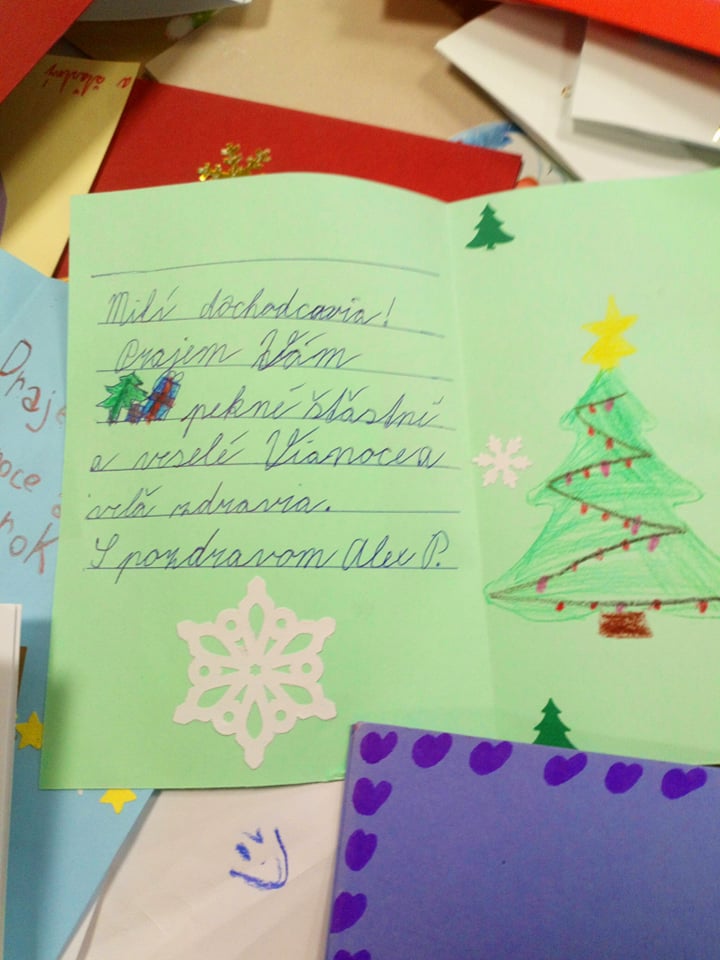 a šťastný
Milí dôchodcovia!
Prajem Vám
pekné šťastné
a veselé Vianoce a
veľa zdravia.
S pozdravom Alex P.
Praje
noce a
rok